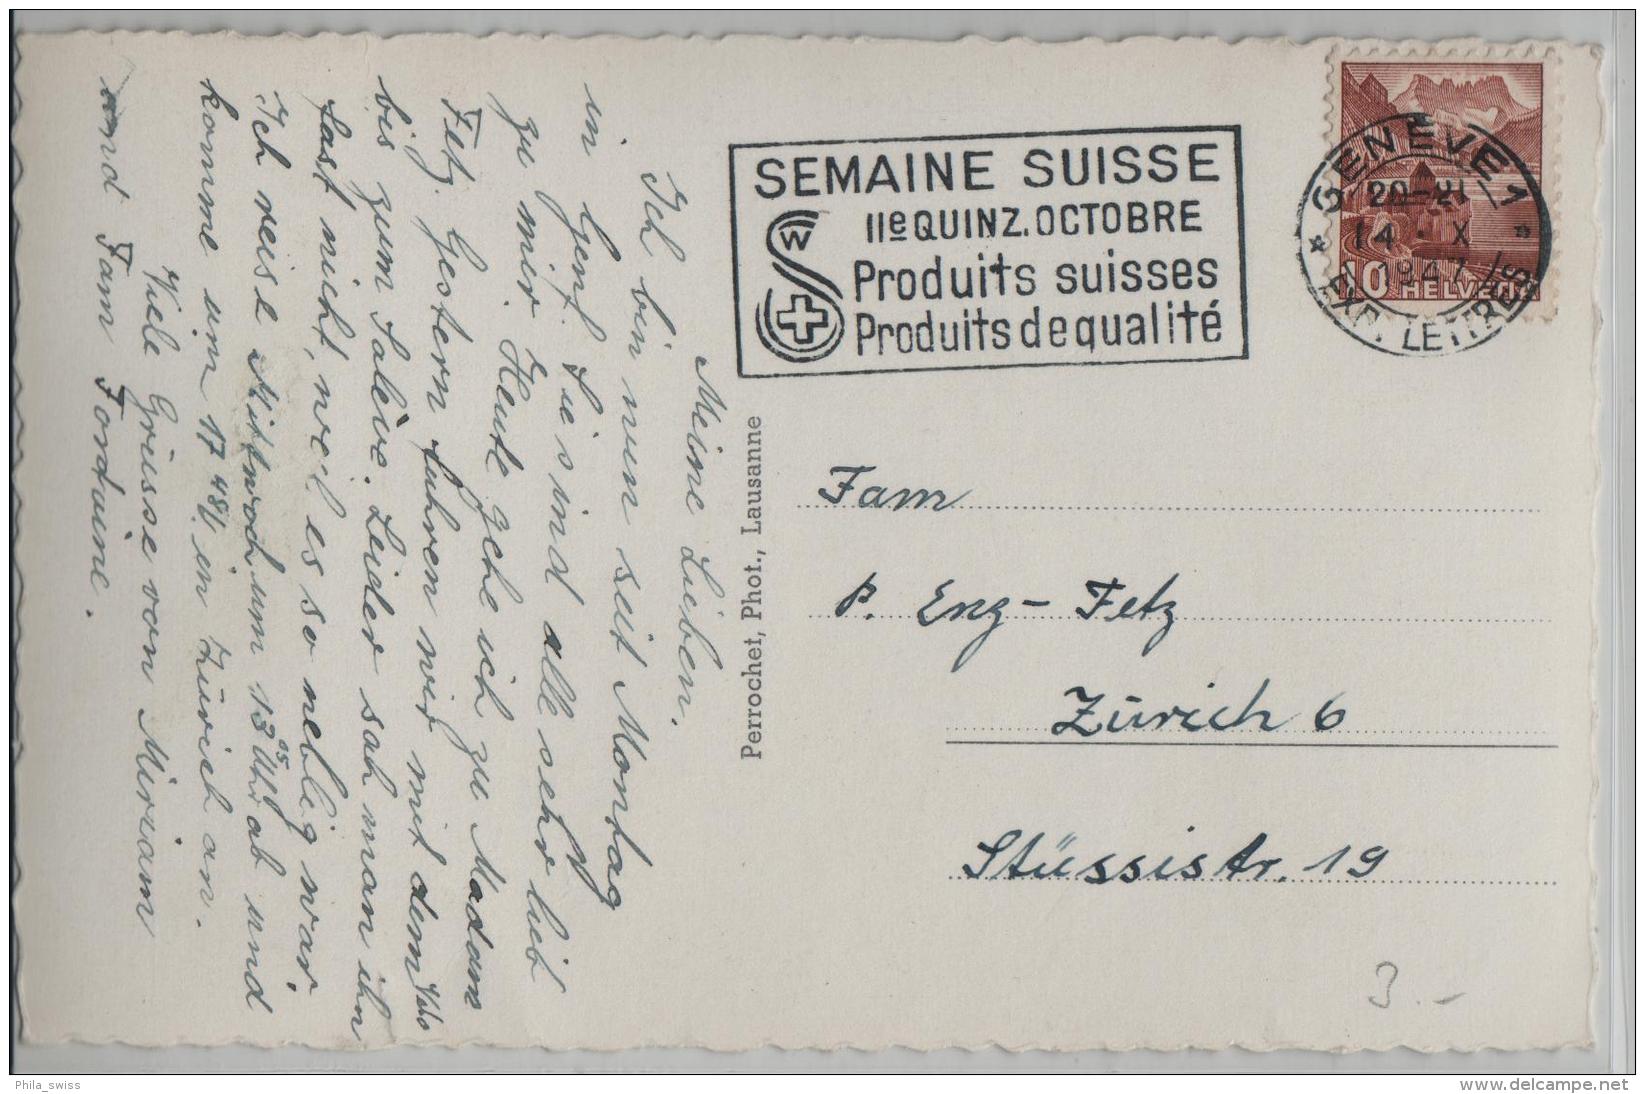 Meine Lieben.
Ich bin nun seit Montag
in Genf. Sie sind alle sehr lieb
zu mir. Heute gehe ich zu Madam
Fetz. Gestern fuhren wir mit dem
bis zum Salève. Leider sah man ihn
fast nicht, weil es so neblig war.
Ich reise Mittwoch um 13 05 Uhr ab und
komme um 17 48 in Zürich an.
Viele Grüsse von Miriam
und Fam Fontaine.
Perrochet, Phot., Lausanne
SEMAINE SUISSE
IIe QUINZ. OCTOBRE
Produits suisses
Produits de qualité
W
GENÈVE 1
20-21
14 · X
1947
EXP. LETTRES
10 HELVETIA
Fam
P. Eng-Fetz
Zürich 6
Stüssistr. 19
3.-
Phila_swiss
www.delcampe.net